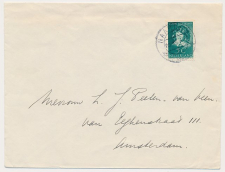 Mevrouw L. J. Peelen - van
van Eeghenstraat 111
Amsterdam.